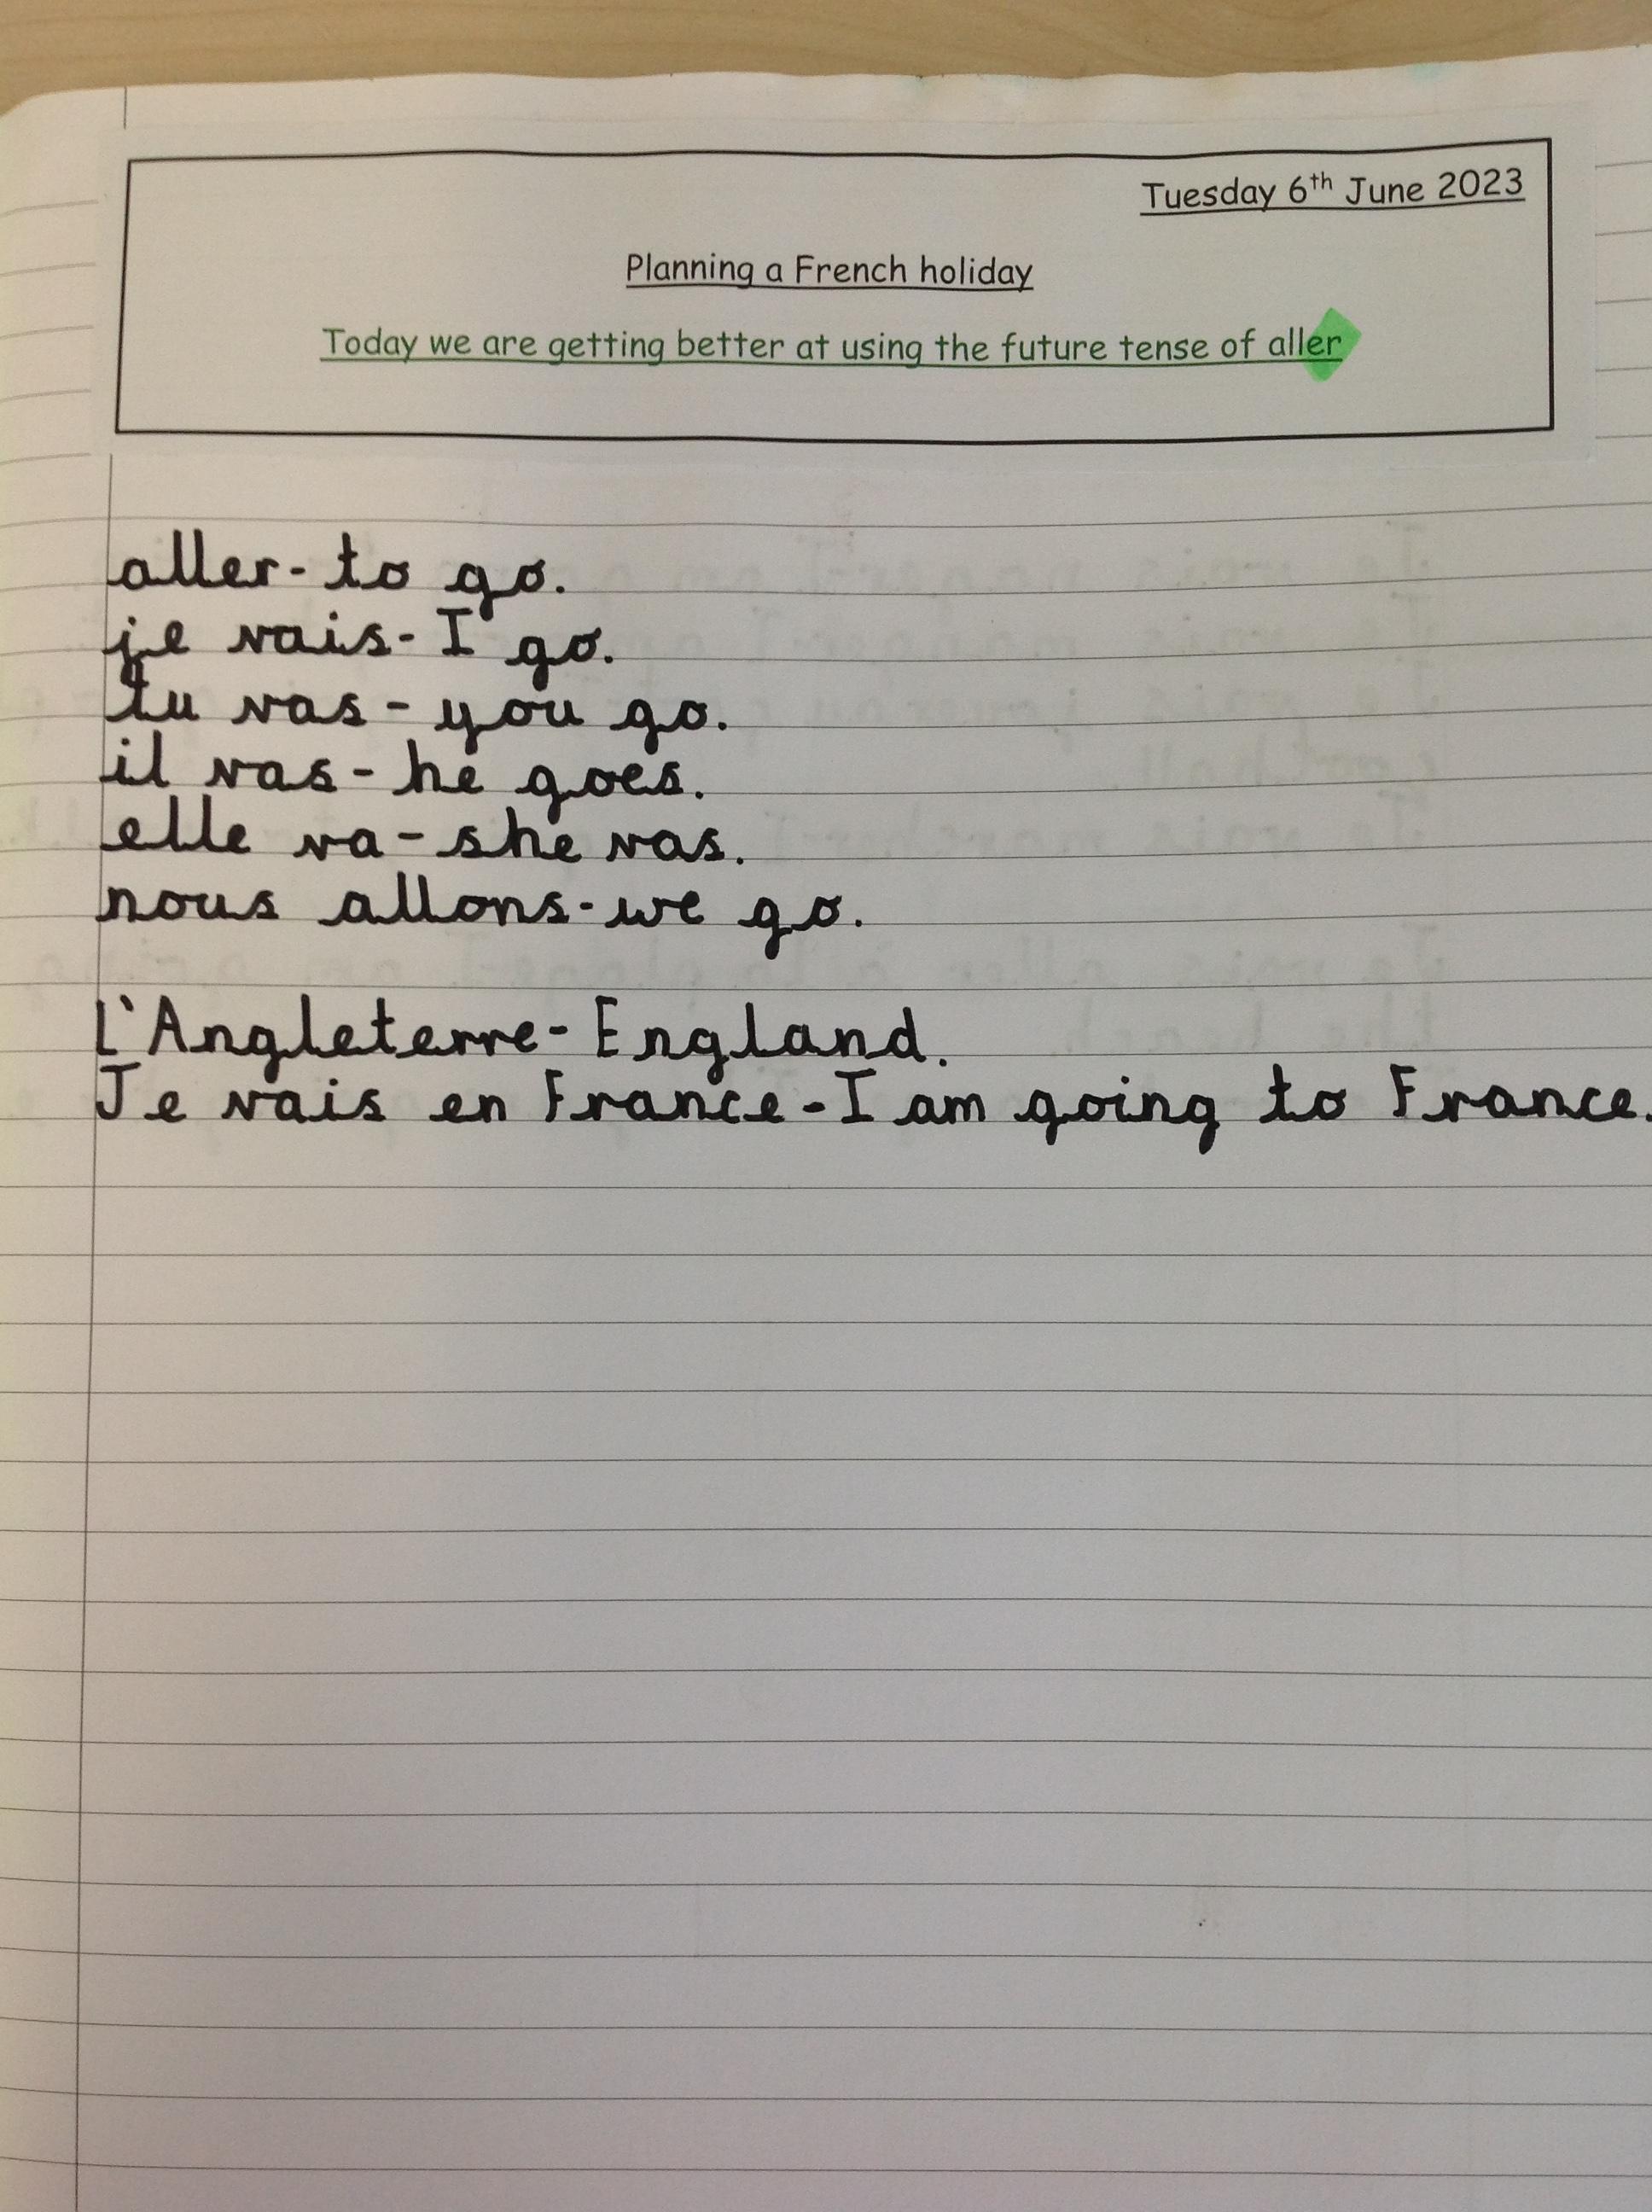 Tuesday 6th June 2023
Planning a French holiday
Today we are getting better at using the future tense of aller
aller- to go.
je vais- I go.
tu vas - you go.
il vas - he goes.
elle va - she vas.
nous allons- we go.
L'Angleterre- England.
Je vais en France - I am going to France.